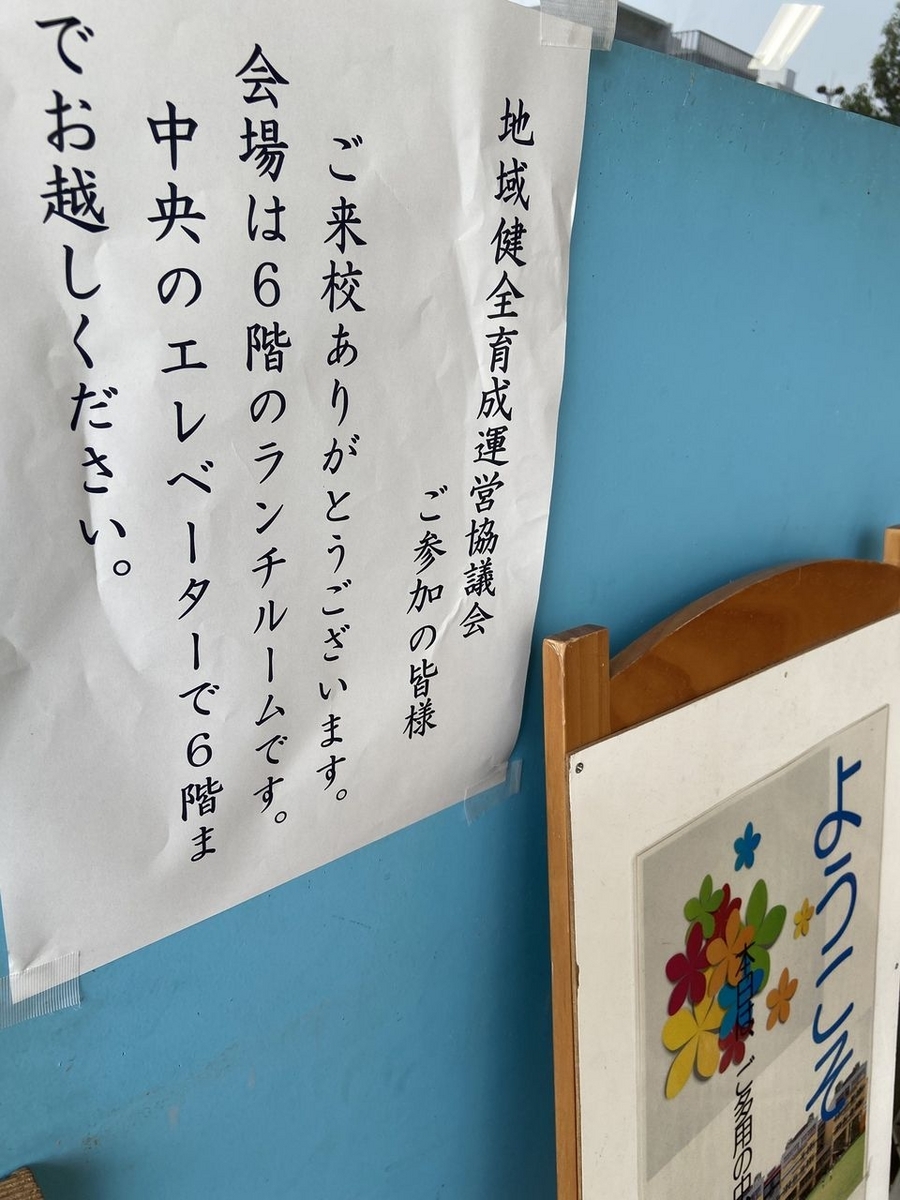 地域健全育成運営協議会
ご参加の皆様
ご来校ありがとうございます。
会場は６階のランチルームです。
中央のエレベーターで６階ま
でお越しください。
ようこそ
本日は、ご多用の中